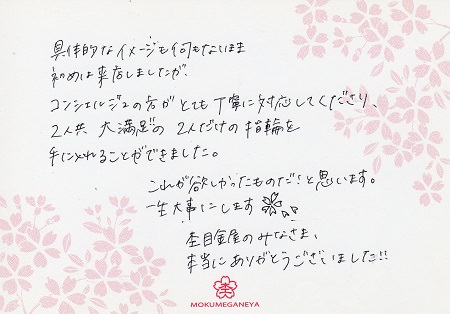 具体的なイメージも何もないまま
初めは来店しましたが、
コンシェルジュの方がとても丁寧に対応してくださり、
2人共 大満足の 2人だけの指輪を
手に入れることができました。
これが欲しかったものだ!と思います。
一生大事にします
杢目金屋のみなさま、
本当にありがとうございました!!
杢
MOKUMEGANEYA